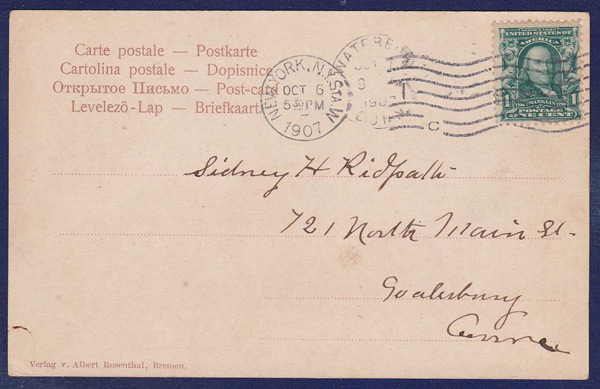 Carte postale — Postkarte
Cartolina postale — Dopisnice
Открытое Письмо — Post-card
Levelezö-Lap — Briefkaart
NEW YORK, N.Y. STA W
OCT 6
5 30 PM
1907
WATERBURY
OCT
6
190
CONN
C
UNITED STATES
OF AMERICA
FRANKLIN
1 1
POSTAGE
ONE CENT
Sidney H Ridpath
721 North Main St.
Waterbury
Conn
Verlag v. Albert Rosenthal, Bremen.